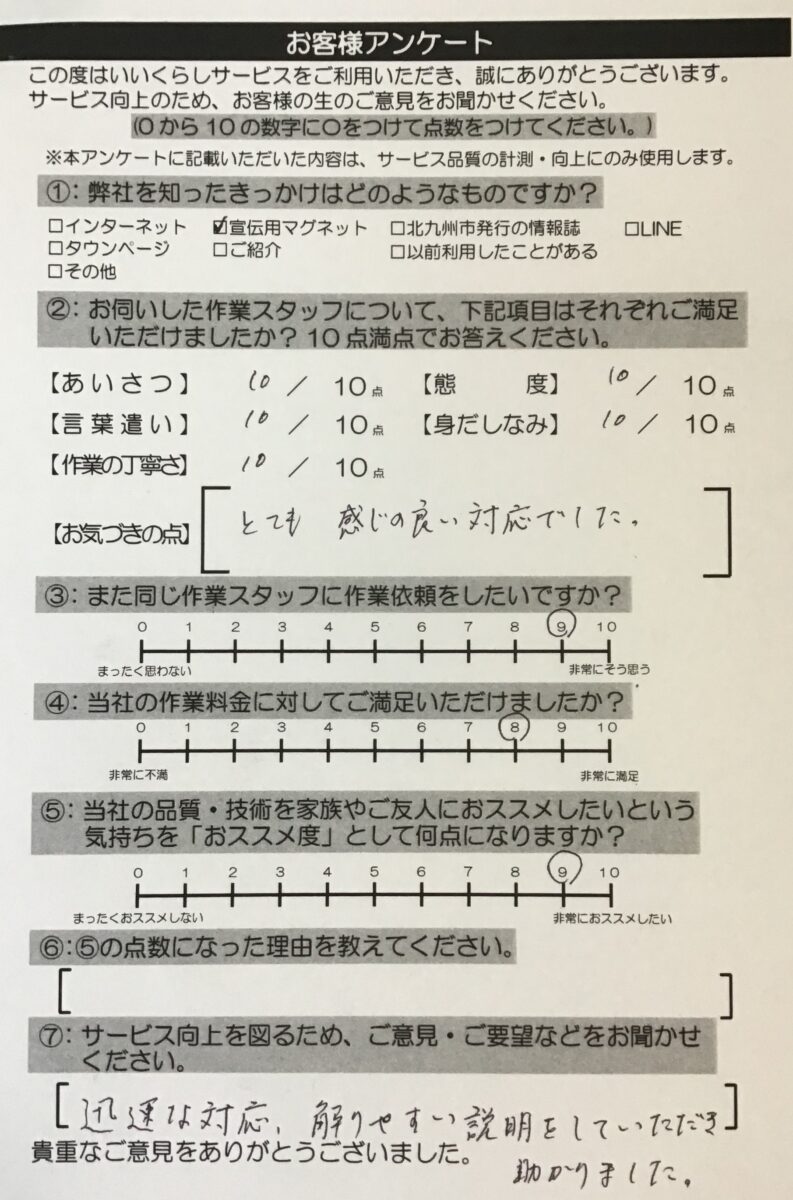 お客様アンケート
この度はいいくらしサービスをご利用いただき、誠にありがとうございます。
サービス向上のため、お客様の生のご意見をお聞かせください。
(0から10の数字に○をつけて点数をつけてください。)
※本アンケートに記載いただいた内容は、サービス品質の計測・向上にのみ使用します。
①：弊社を知ったきっかけはどのようなものですか？
□インターネット ☑宣伝用マグネット □北九州市発行の情報誌 □LINE
□タウンページ □ご紹介 □以前利用したことがある
□その他
②：お伺いした作業スタッフについて、下記項目はそれぞれご満足
いただけましたか？10点満点でお答えください。
【あいさつ】 10 / 10点 【態度】 10 / 10点
【言葉遣い】 10 / 10点 【身だしなみ】 10 / 10点
【作業の丁寧さ】 10 / 10点
【お気づきの点】 とても 感じの良い対応でした。
③：また同じ作業スタッフに作業依頼をしたいですか？
0 1 2 3 4 5 6 7 8 9 10
まったく思わない 非常にそう思う
④：当社の作業料金に対してご満足いただけましたか？
0 1 2 3 4 5 6 7 8 9 10
非常に不満 非常に満足
⑤：当社の品質・技術を家族やご友人におススメしたいという
気持ちを「おススメ度」として何点になりますか？
0 1 2 3 4 5 6 7 8 9 10
まったくおススメしない 非常におススメしたい
⑥：⑤の点数になった理由を教えてください。
⑦：サービス向上を図るため、ご意見・ご要望などをお聞かせ
ください。
迅速な対応、解りやすい説明をしていただき
貴重なご意見をありがとうございました。
助かりました。